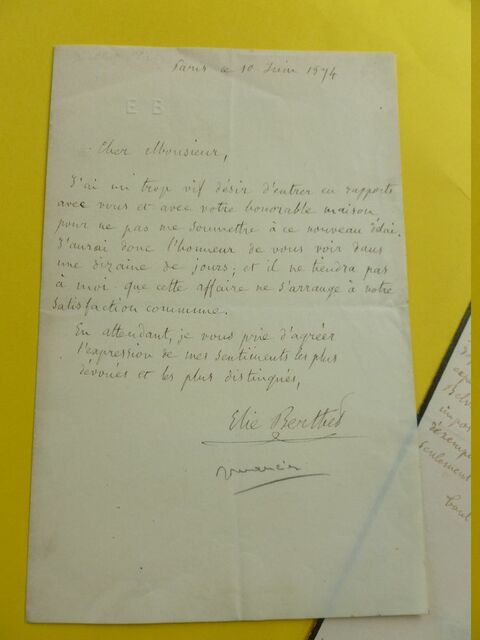 Paris ce 10 Juin 1874
E B
Cher Monsieur,
J'ai un trop vif désir d'entrer en rapports
avec vous et avec votre honorable maison,
pour ne pas me soumettre à ce nouveau délai.
J'aurai donc l'honneur de vous voir dans
une dizaine de jours; et il ne tiendra pas
à moi que cette affaire ne s'arrange à notre
satisfaction commune.
En attendant, je vous prie d'agréer
l'expression de mes sentiments les plus
dévoués et les plus distingués,
Elie Berthet
romancier
seulement